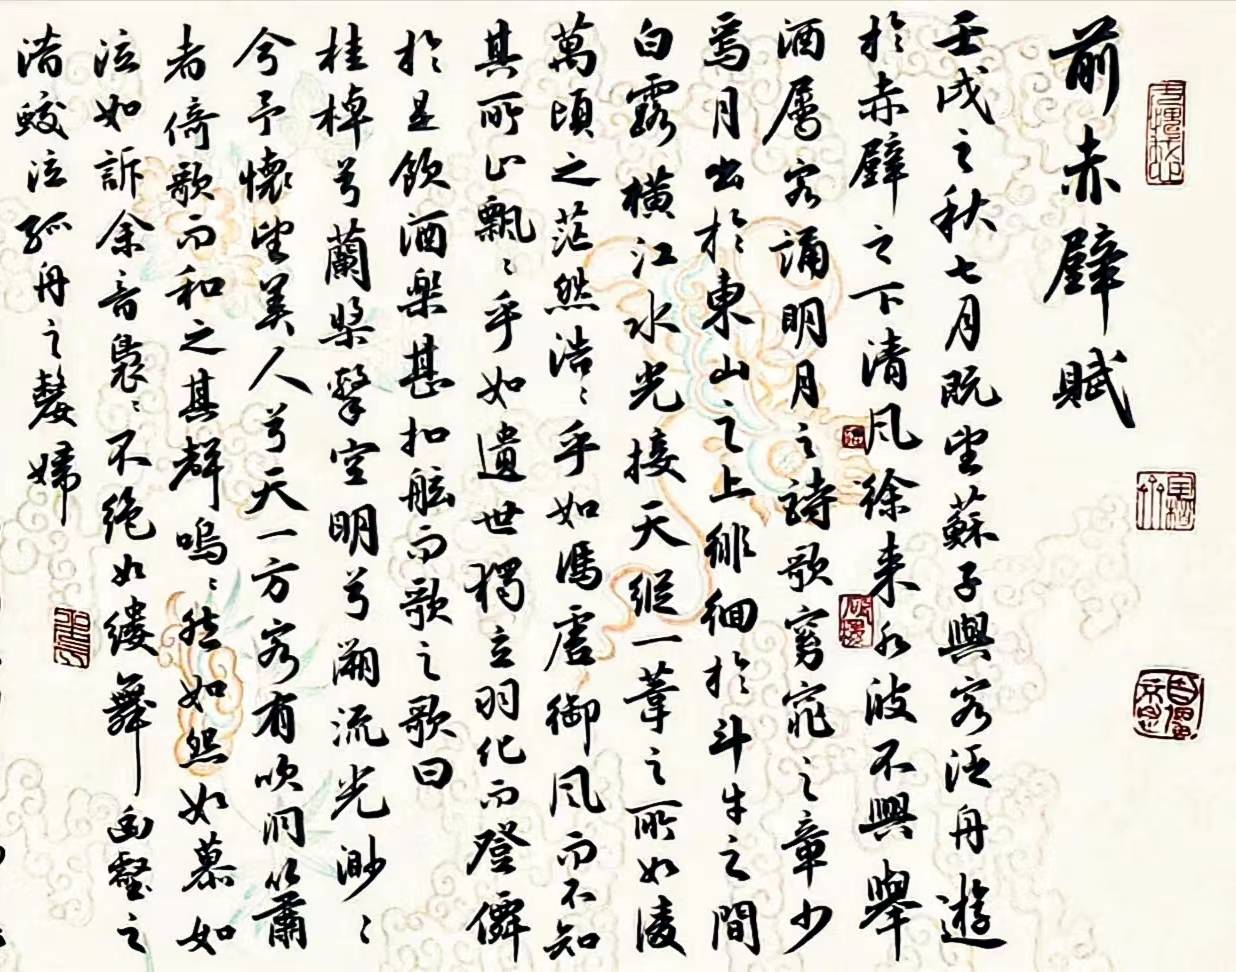 前赤壁賦
壬戌之秋七月既望蘇子與客泛舟遊
於赤壁之下清风徐来水波不興舉
酒屬客誦明月之詩歌窈窕之章少
焉月出於東山之上徘徊於斗牛之間
白露橫江水光接天縱一葦之所如淩
萬頃之茫然浩〻乎如馮虛御风而不知
其所止飄〻乎如遺世獨立羽化而登僊
於是飲酒樂甚扣舷而歌之歌曰
桂棹兮蘭槳擊空明兮溯流光渺〻
兮予懷望美人兮天一方客有吹洞簫
者倚歌而和之其聲嗚〻然如怨如慕如
泣如訴余音裊〻不绝如縷舞幽壑之
潜蛟泣孤舟之嫠婦